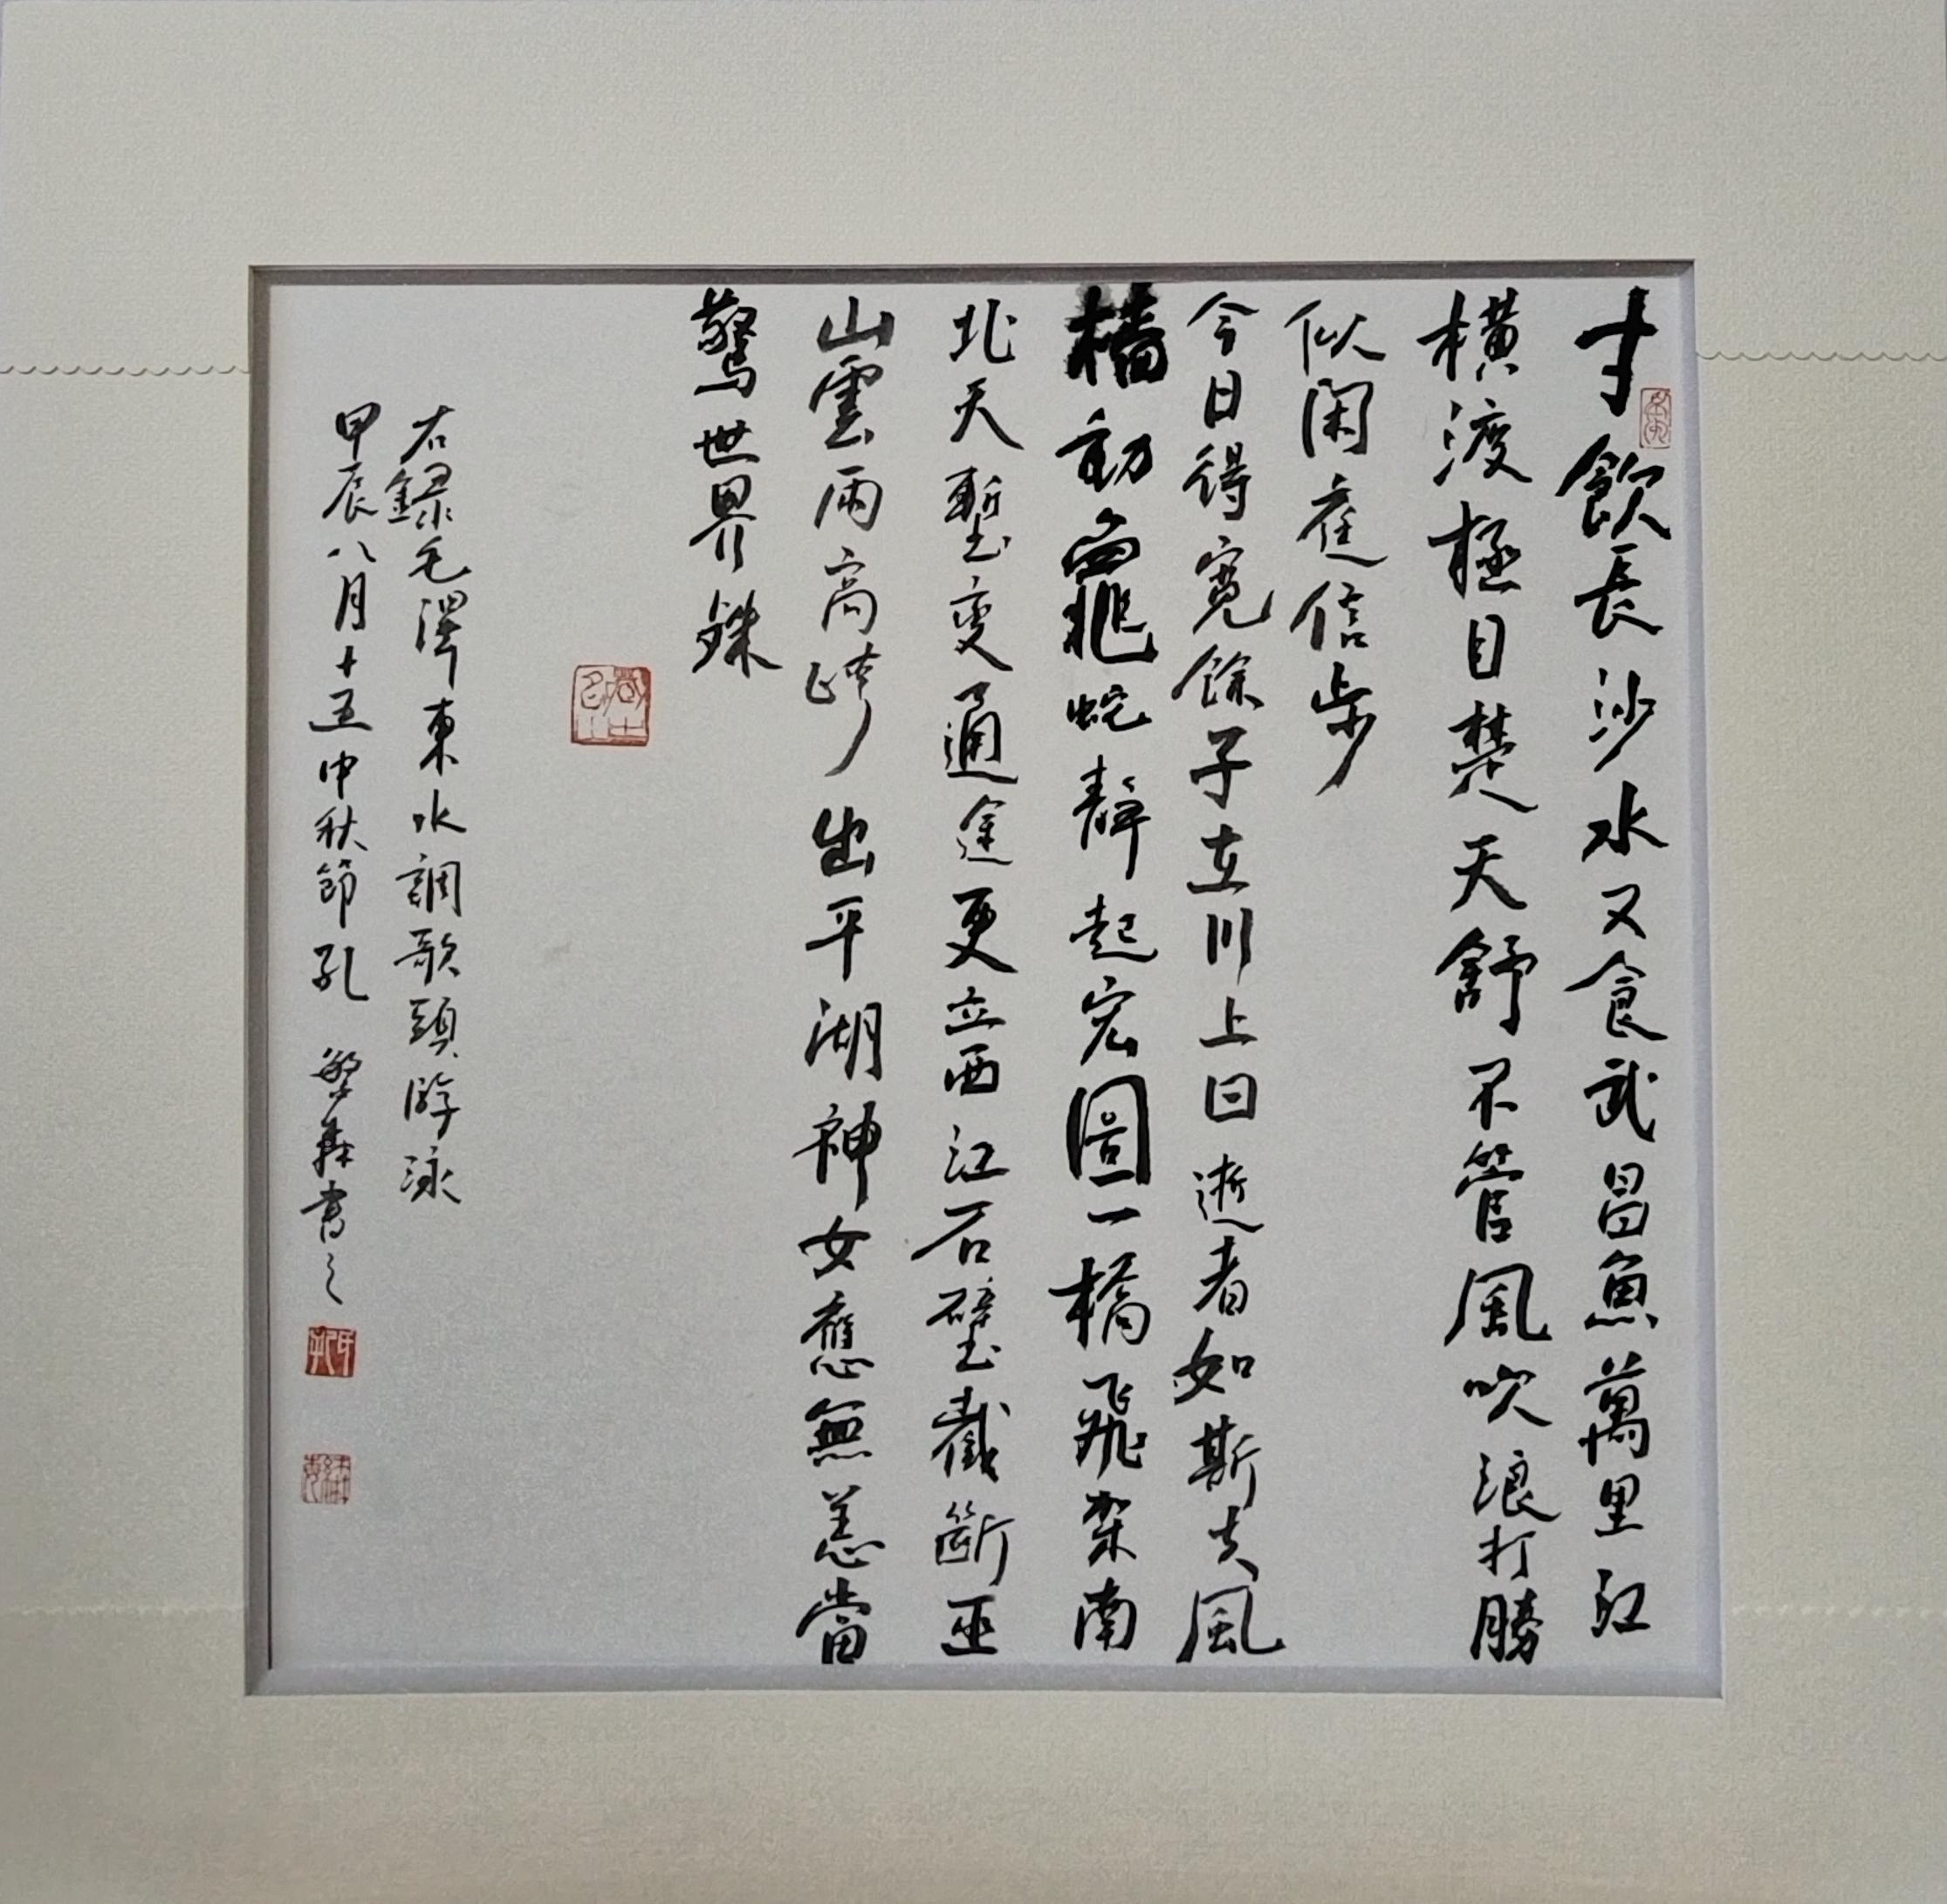 才飲長沙水又食武昌魚萬里江
橫渡極目楚天舒不管風吹浪打勝
似閑庭信步
今日得寬餘子在川上曰逝者如斯夫風
檣動龜蛇靜起宏圖一橋飛架南
北天塹變通途更立西江石壁截斷巫
山雲雨高峽出平湖神女應無恙當
驚世界殊
右錄毛澤東水調歌頭游泳
甲辰八月十五中秋節孔繁森書之